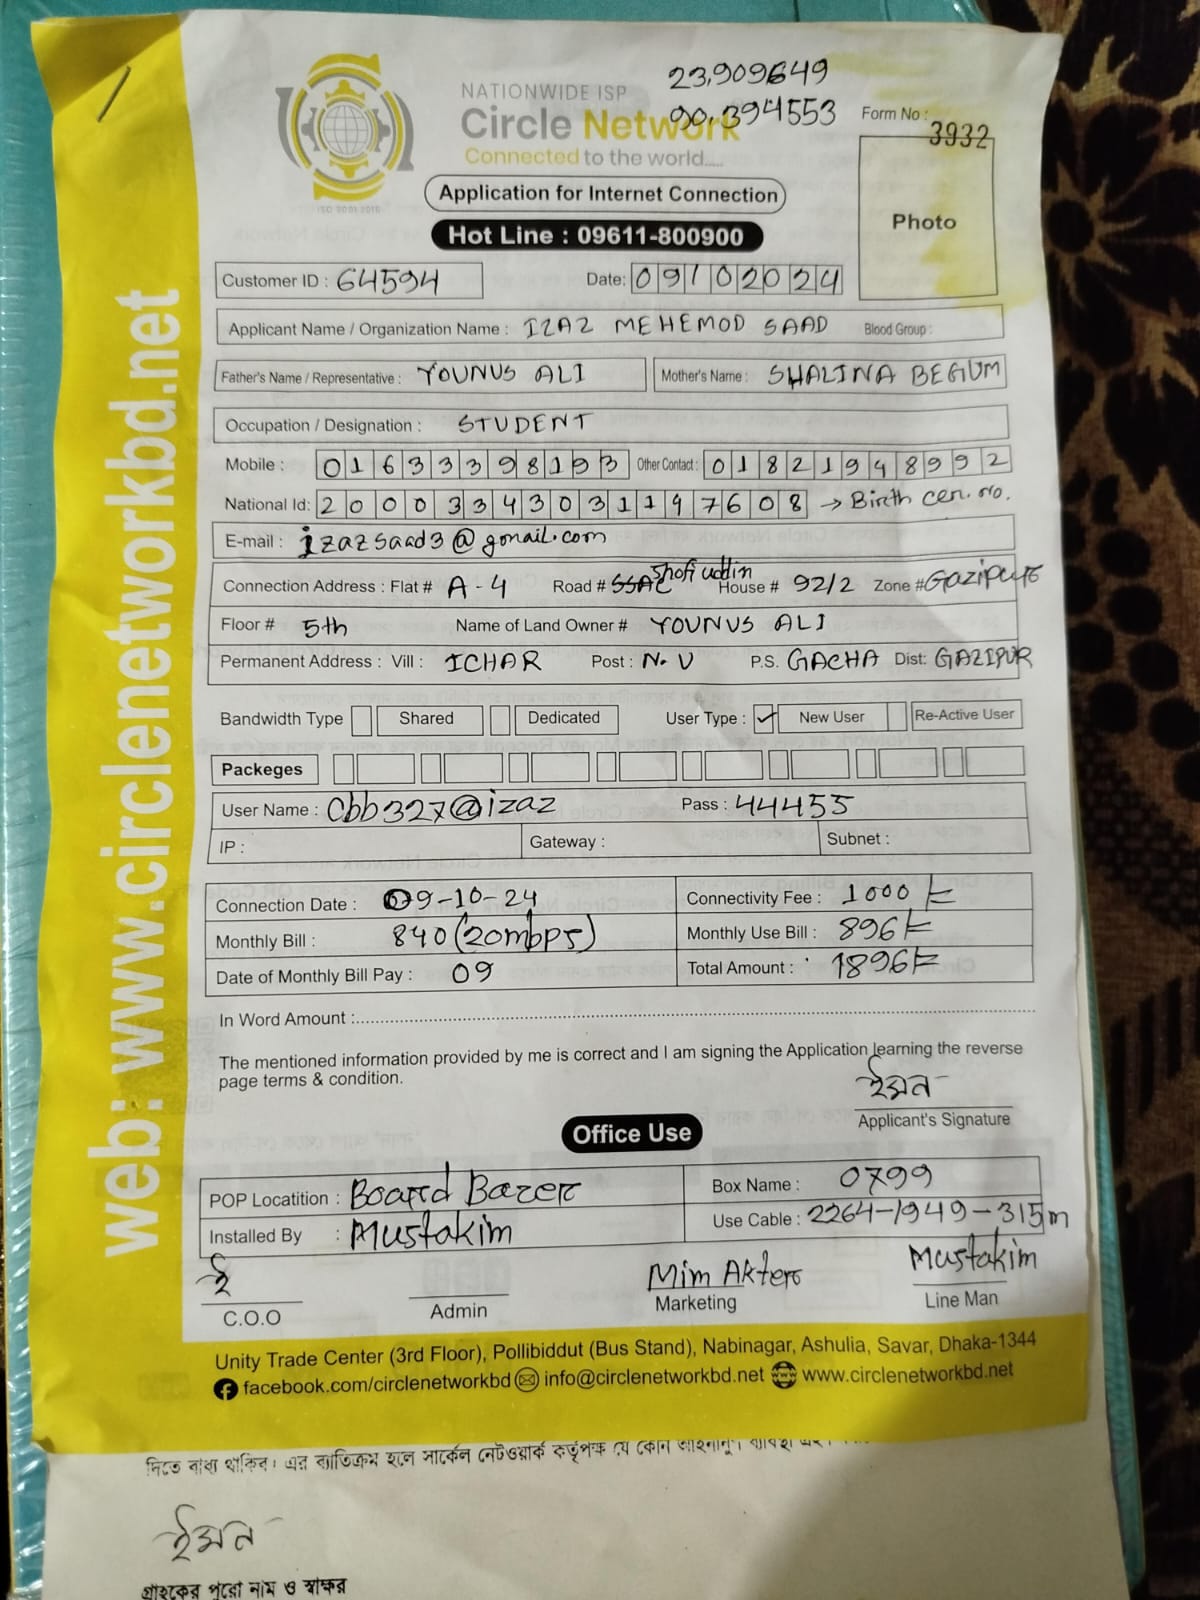 23.909649
NATIONWIDE ISP
90.394553
Circle Network
Form No : 3932
Connected to the world.....
ISO 9001:2015
Application for Internet Connection
Photo
Hot Line : 09611-800900
Customer ID : 64594 Date: 09102024
Applicant Name / Organization Name : IZAZ MEHEMOD SAAD Blood Group :
Father's Name / Representative : YOUNUS ALI Mother's Name : SHALINA BEGUM
Occupation / Designation : STUDENT
Mobile : 01633398193 Other Contact : 01821948992
National Id: 20003343031197608 → Birth cer. no.
E-mail : izazsaad3@gmail.com
Connection Address : Flat # A-4 Road # Shofi uddin House # 92/2 Zone # Gazipur
Floor # 5th Name of Land Owner # YOUNUS ALI
Permanent Address : Vill : ICHAR Post : N.U P.S. GACHA Dist: GAZIPUR
Bandwidth Type Shared Dedicated User Type : ✓ New User Re-Active User
Packeges
User Name : Cbb327@izaz Pass : 44455
IP : Gateway : Subnet :
Connection Date : 09-10-24 Connectivity Fee : 1000 tk
Monthly Bill : 840 (20mbps) Monthly Use Bill : 896 tk
Date of Monthly Bill Pay : 09 Total Amount : 1896 tk
In Word Amount :
The mentioned information provided by me is correct and I am signing the Application learning the reverse
page terms & condition.
ইমন
Applicant's Signature
Office Use
POP Locatition : Board Bazer Box Name : 0799
Installed By : Mustakim Use Cable : 2264-1949-315m
ই Mim Akter Mustakim
C.O.O Admin Marketing Line Man
Unity Trade Center (3rd Floor), Pollibiddut (Bus Stand), Nabinagar, Ashulia, Savar, Dhaka-1344
facebook.com/circlenetworkbd info@circlenetworkbd.net www.circlenetworkbd.net
web: www.circlenetworkbd.net
দিতে বাধ্য থাকিব। এর ব্যতিক্রম হলে সার্কেল নেটওয়ার্ক কর্তৃপক্ষ যে কোন
ইমন
গ্রাহকের পুরো নাম ও স্বাক্ষর